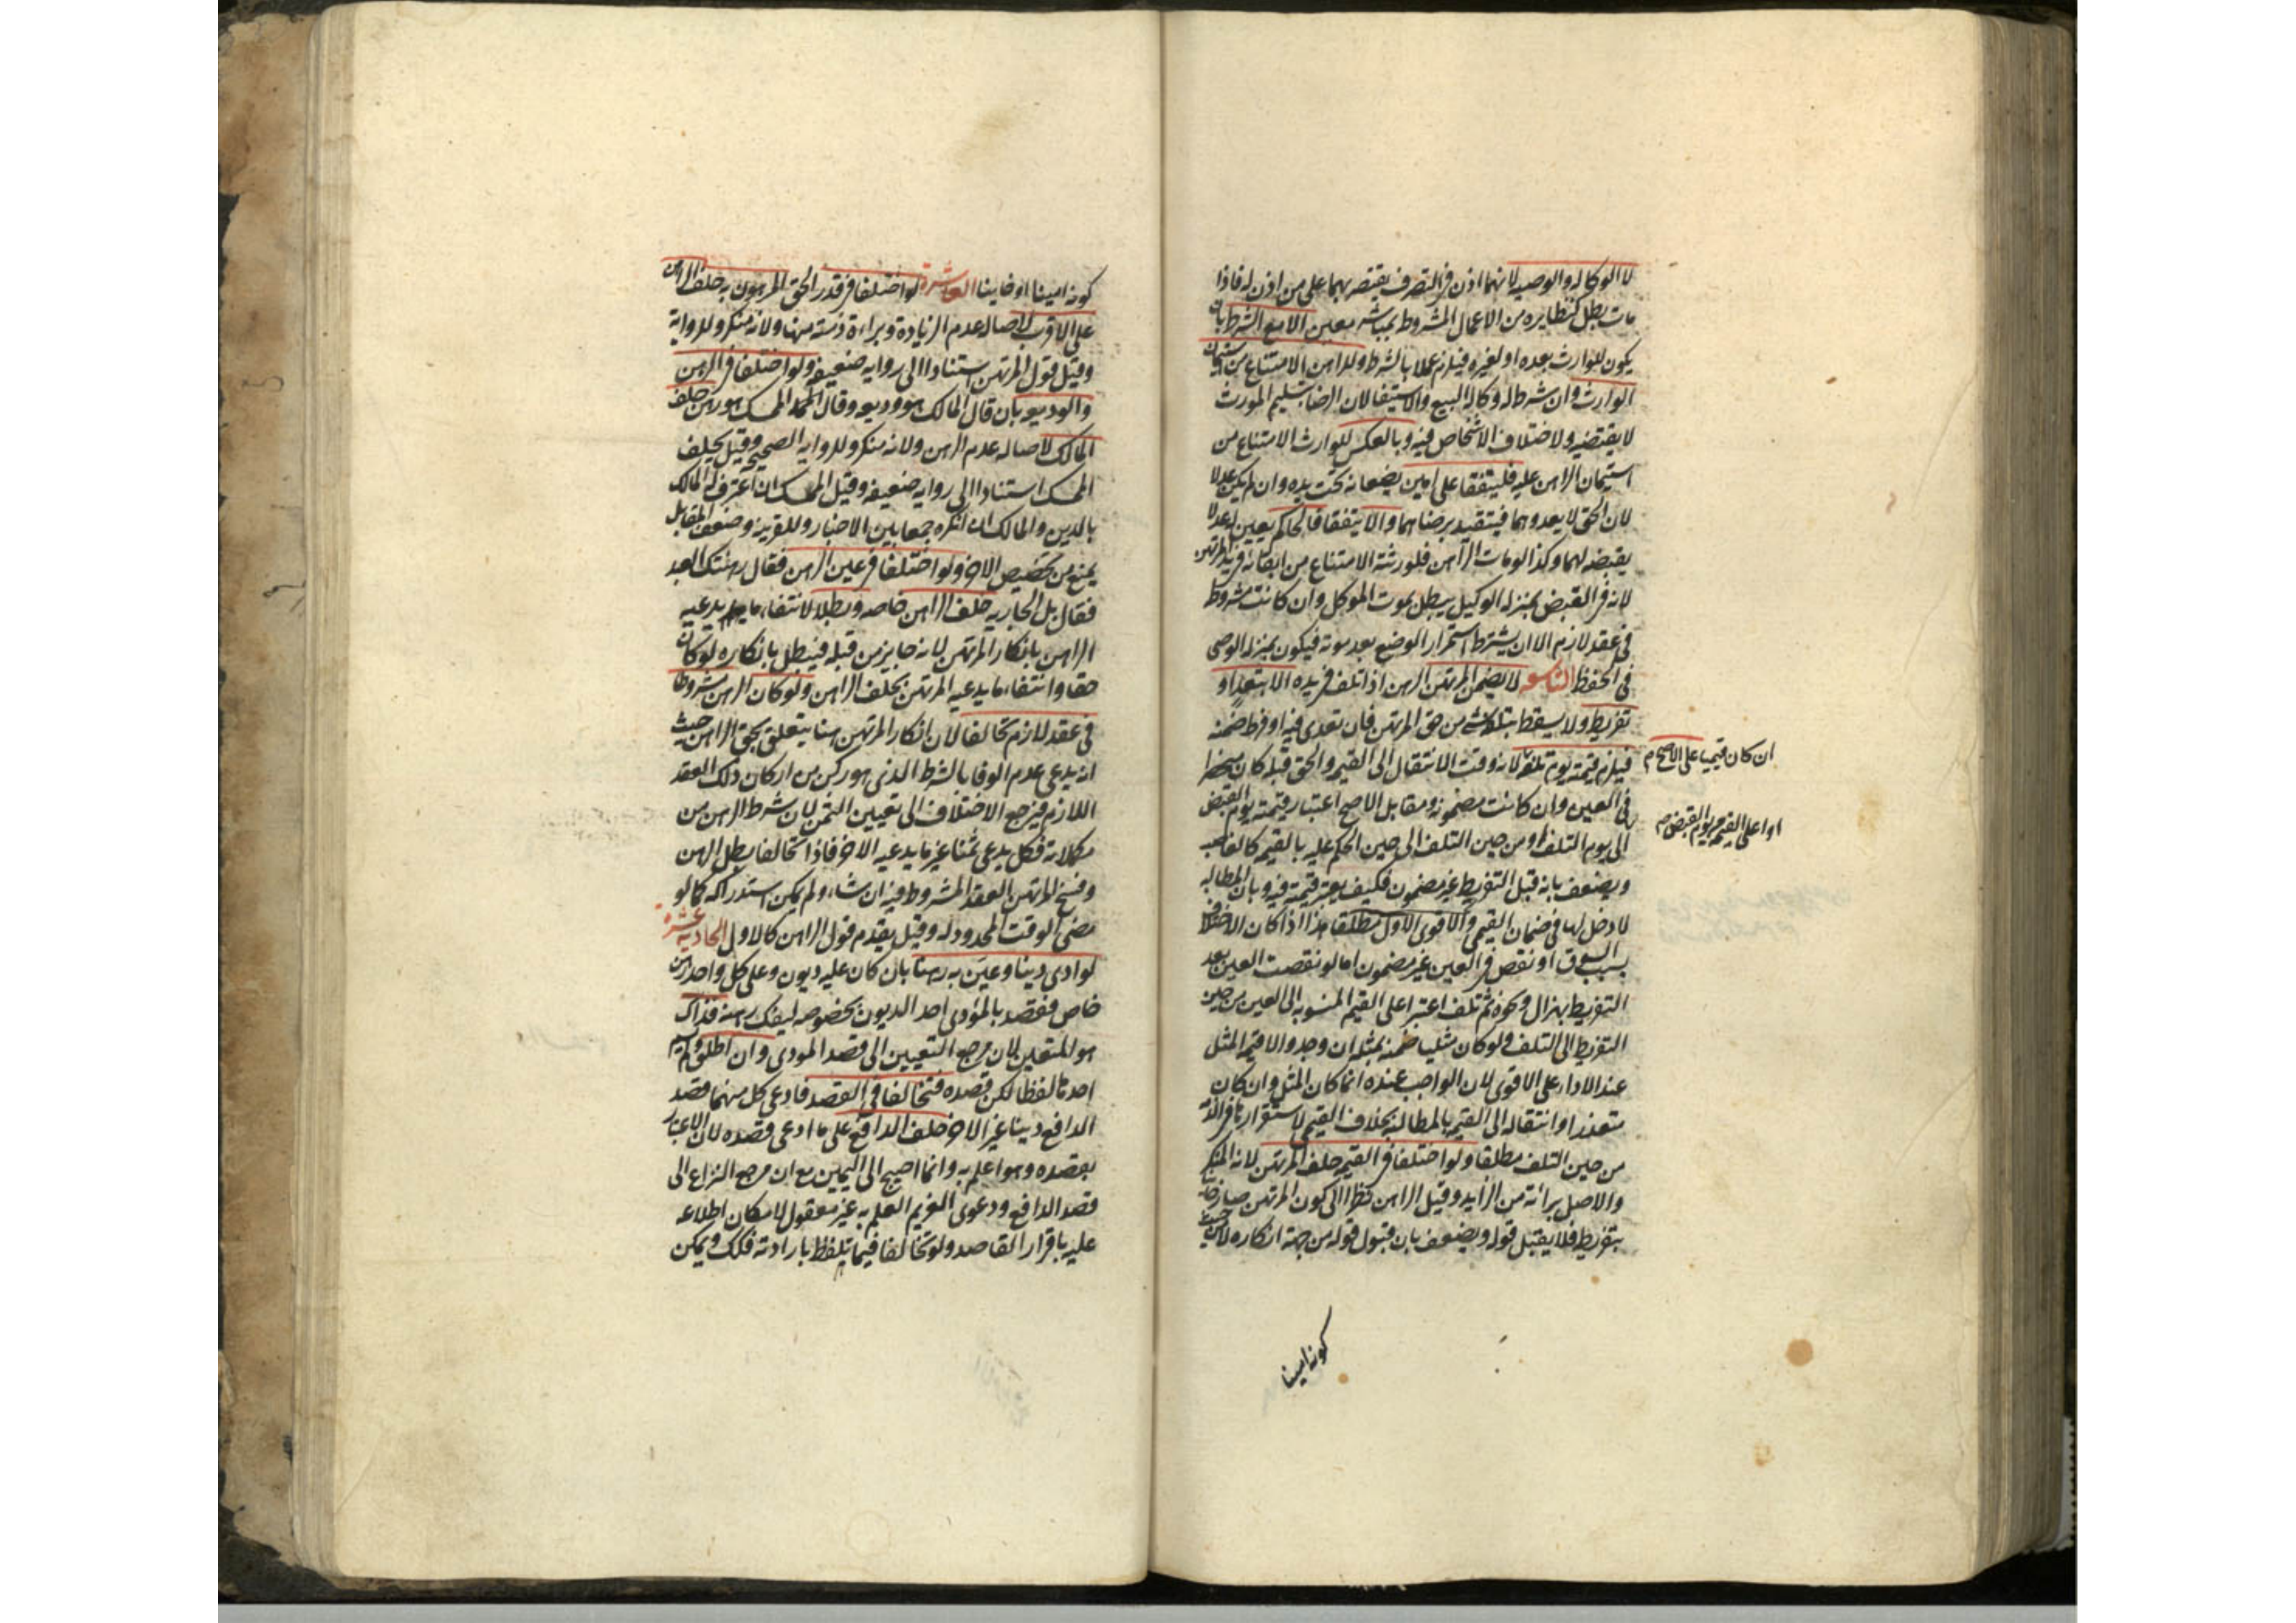 لا الوكاله والوصيه لانهما اذن في التصرف يقتصر بهما على من اذن له فاذا
مات بطل كنظايره من الاعمال المشروط بمباشر معين الا مع الشرط بان
يكون للوارث بعده او لغيره فيلزم عملا بالشرط وللراهن الامتناع من استيمان
الوارث وان شرط له وكاله البيع والاستيفا لان الرضا بتسليم المورث
لا يقتضيه ولاختلاف الاشخاص فيه وبالعكس للوارث الامتناع من
استيمان الراهن عليه فليتفقا على امين يضعانه تحت يده وان لم يكن عدلا
لان الحق لا يعدوهما فيتقيد برضاهما والا يتفقا فالحاكم يعين له عدلا
يقبضه لهما وكذا لو مات الراهن فلورثته الامتناع من ابقائه في يد المرتهن
لانه في القبض بمنزله الوكيل يبطل بموت الموكل وان كانت مشروطه
في عقد لازم الا ان يشترط استمرار الوضع بعد موته فيكون بمنزله الوصي
في الحفظ التاسعه لا يضمن المرتهن الرهن اذا تلف في يده الا بتعد او
تفريط ولا يسقط بتلفه شي من حق المرتهن فان تعدى فيه او فرط ضمنه
فيلزم قيمته يوم تلفه لانه وقت الانتقال الى القيمه والحق قبله كان منحصرا
ان كان قيميا على الاصح م
في العين وان كانت مضمونه ومقابل الاصح اعتبار قيمته يوم القبض
او اعلى القيم من يوم القبض م
الى يوم التلف او من حين التلف الى حين الحكم عليه بالقيمه كالغاصب
ويضعف بانه قبل التفريط غير مضمون فكيف يعتبر قيمته فيه وبان المطالبه
لا دخل لها في ضمان القيمي والاقوى الاول مطلقا هذا اذا كان الاختلاف
بسبب السوق او نقص في العين غير مضمون اما لو نقصت العين بعد
التفريط بهزال ونحوه ثم تلف اعتبر اعلى القيم المنسوبه الى العين من حين
التفريط الى التلف ولو كان مثليا ضمنه بمثله ان وجد والا قيمه المثل
عند الاداء على الاقوى لان الواجب عنده انما كان المثل وان كان
متعذرا وانتقاله الى القيمه بالمطالبه بخلاف القيمي لاستقرارها في الذمه
من حين التلف مطلقا ولو اختلفا في القيمه حلف المرتهن لانه المنكر
والاصل برائته من الزايد وقيل الراهن نظرا الى كون المرتهن صار خاينا
بتفريطه فلا يقبل قوله ويضعف بان قبول قوله من جهة انكاره لا من حيث
كونه امينا
كونه امينا او خاينا العاشرة لو اختلفا في قدر الحق المرهون به حلف الراهن
على الاقرب لاصاله عدم الزيادة وبراءة ذمته منها ولانه منكر وللرواية
وقيل قول المرتهن استنادا الى روايه ضعيفه ولو اختلفا في الرهن
والوديعه بان قال المالك هو وديعه وقال الممسك هو رهن حلف
المالك لاصاله عدم الرهن ولانه منكر وللروايه الصحيحه وقيل يحلف
الممسك استنادا الى روايه ضعيفه وقيل الممسك ان اعترف له المالك
بالدين والمالك ان انكره جمعا بين الاخبار وللقرينه وضعف المقابل
يمنع من تخصيص الاخر ولو اختلفا في عين الرهن فقال رهنتك العبد
فقال بل الجاريه حلف الراهن خاصه وبطلا لانتفاء ما يدعيه
الراهن بانكار المرتهن لانه جايز من قبله فيبطل بانكاره لو كان
حقا وانتفاء ما يدعيه المرتهن بحلف الراهن ولو كان الرهن مشروطا
في عقد لازم تحالفا لان انكار المرتهن هنا يتعلق بحق الراهن حيث
انه يدعي عدم الوفا بالشرط الذي هو ركن من اركان ذلك العقد
اللازم فيرجع الاختلاف الى تعيين الثمن لان شرط الرهن من
مكملاته فكل يدعي ثمنا غير ما يدعيه الاخر فاذا تحالفا بطل الرهن
وفسخ المرتهن العقد المشروط فيه ان شاء ولم يمكن استدراكه كما لو
مضى الوقت المحدود له وقيل يقدم قول الراهن كالاول الحاديه عشرة
لو ادى دينا وعين به رهنا بان كان عليه ديون وعلى كل واحد رهن
خاص فقصد بالمؤدى احد الديون بخصوصه ليفك رهنه فذاك
هو المتعين لان مرجع التعيين الى قصد المودي وان اطلق ولم يسم
احدها لفظا لكن قصده فتخالفا في القصد فادعى كل منهما قصد
الدافع دينا غير الاخر حلف الدافع على ما ادعى قصده لان الاعتبار
بقصده وهو اعلم به وانما احتيج الى اليمين مع ان مرجع النزاع الى
قصد الدافع ودعوى الغريم العلم به غير معقول لامكان اطلاعه
عليه باقرار القاصد ولو تخالفا فيما تلفظ بارادته فكك ويمكن